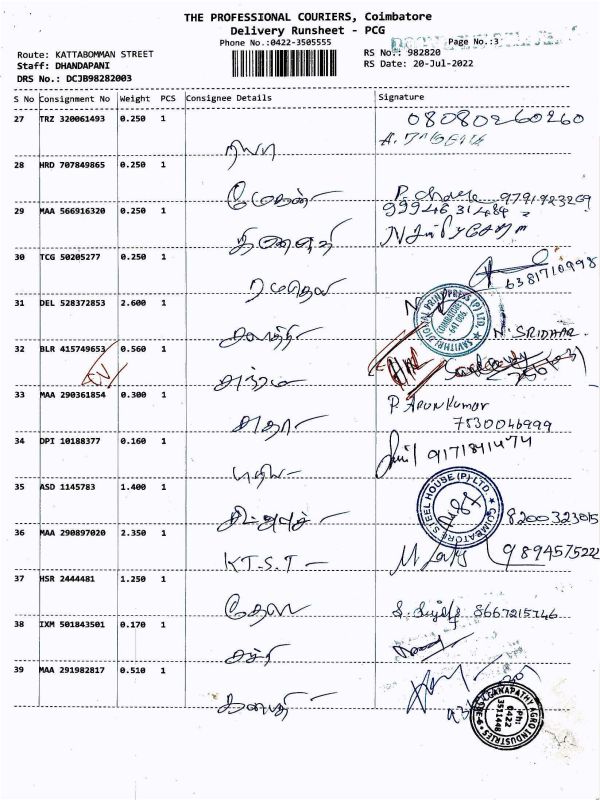 THE PROFESSIONAL COURIERS, Coimbatore
Delivery Runsheet - PCG
Phone No.:0422-3505555
Page No.:3
Route: KATTABOMMAN STREET
RS No.: 982820
Staff: DHANDAPANI
RS Date: 20-Jul-2022
DRS No.: DCJB98282003
S No Consignment No Weight PCS Consignee Details Signature
27 TRZ 320061493 0.250 1 08080260260
ரியா
28 HRD 707849865 0.250 1
மோகன் 9791923269
29 MAA 566916320 0.250 1 9994631484
30 TCG 50205277 0.250 1
6381710998
31 DEL 528372853 2.600 1
SAVITHRI DIGITAL PRINT PRESS (P) LTD. COIMBATORE 641 006.
N. SRIDHAR
32 BLR 415749653 0.560 1
33 MAA 290361854 0.300 1 P. Arun Kumar
சுதா 7530046999
34 DPI 10188377 0.160 1 9171841474
35 ASD 1145783 1.400 1
COIMBATORE STEEL HOUSE (P) LTD.
8200323015
36 MAA 290897020 2.350 1
K.T.S.T 9894575222
37 HSR 2444481 1.250 1
8667215746
38 IXM 501843501 0.170 1
சக்தி
39 MAA 291982817 0.510 1
கணபதி
GANAPATHY AGRO INDUSTRIES Ph: 0422